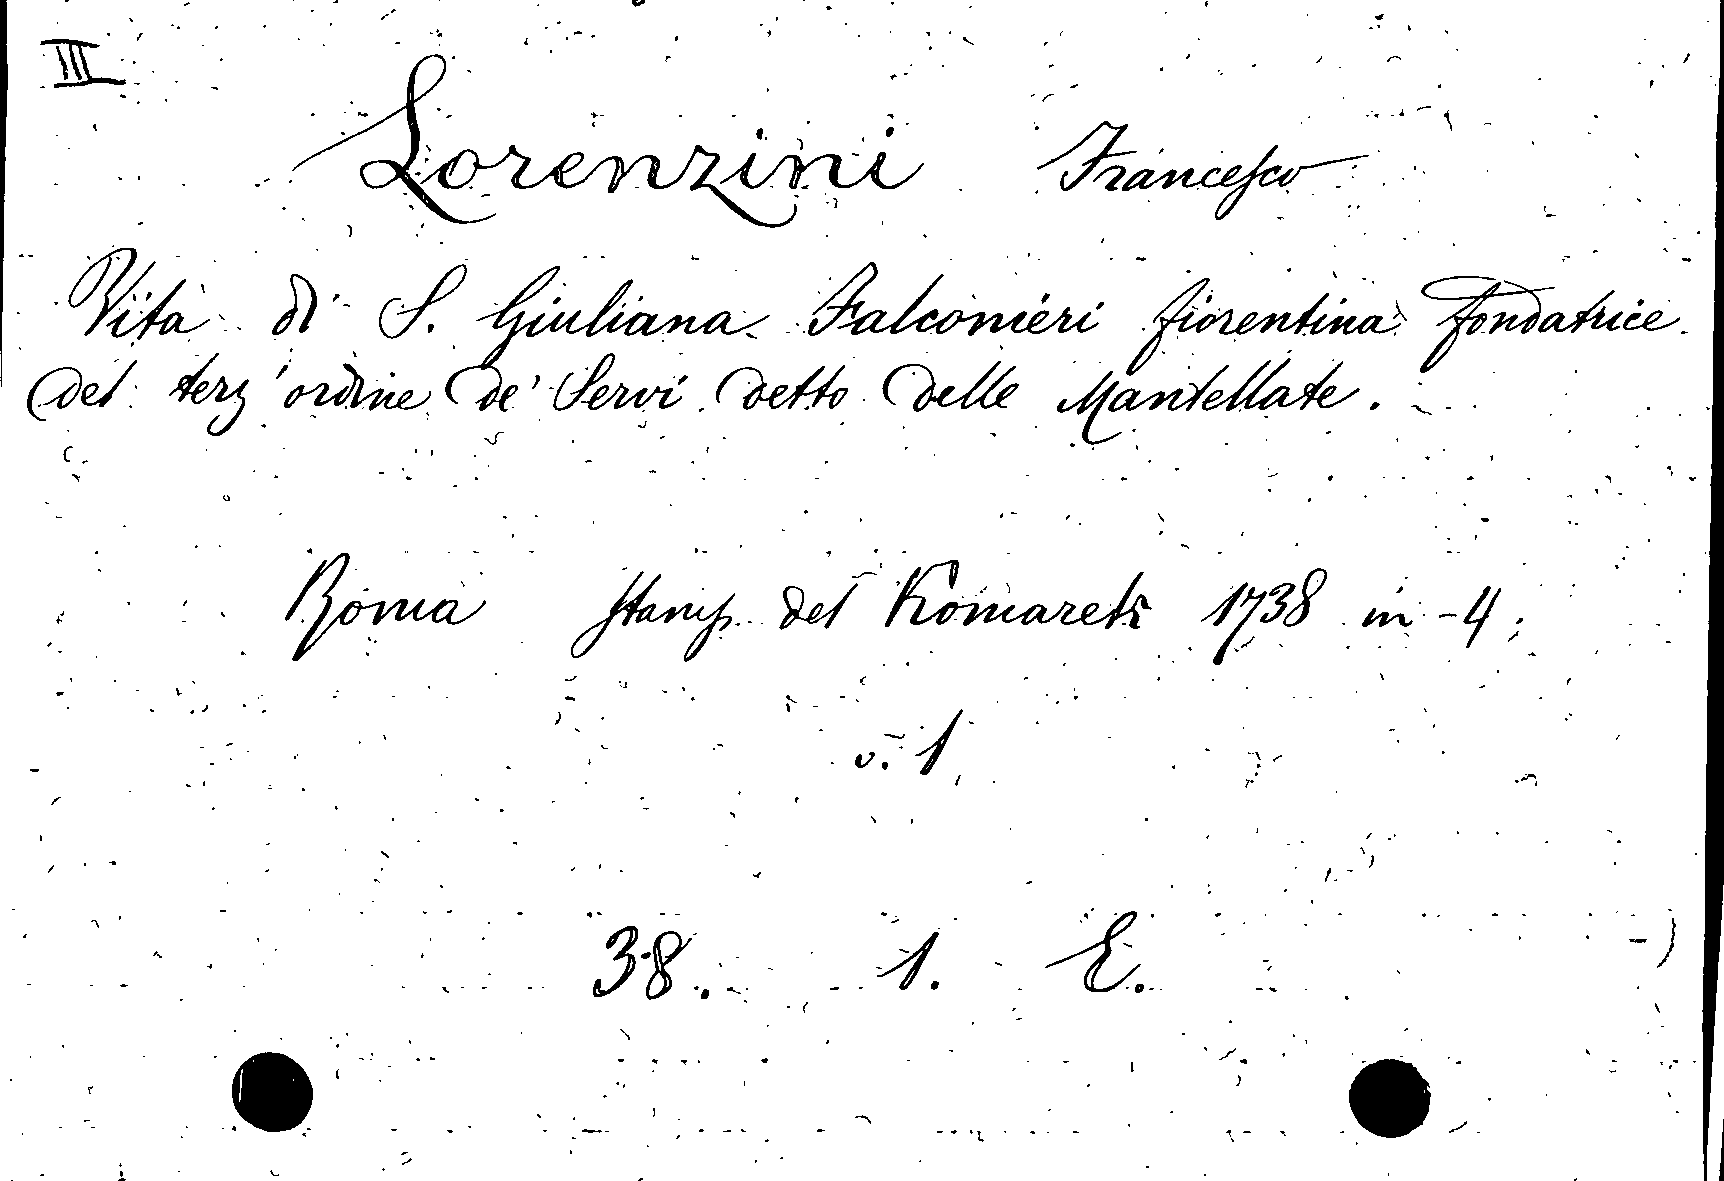 III
Lorenzini Francesco
Vita di S. Giuliana Falconieri fiorentina fondatrice
del terz'ordine de' Servi detto delle Mantellate.
Roma stamp del Komarek 1738 in-4;
v. 1
38. 1. E.